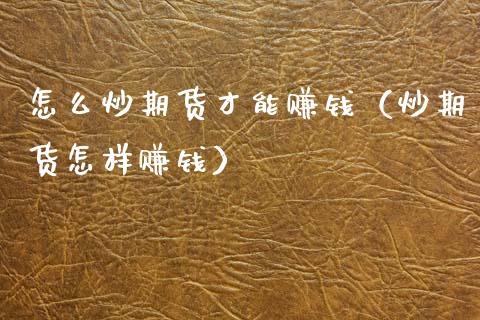 怎么炒期货才能赚钱（炒期
货怎样赚钱）